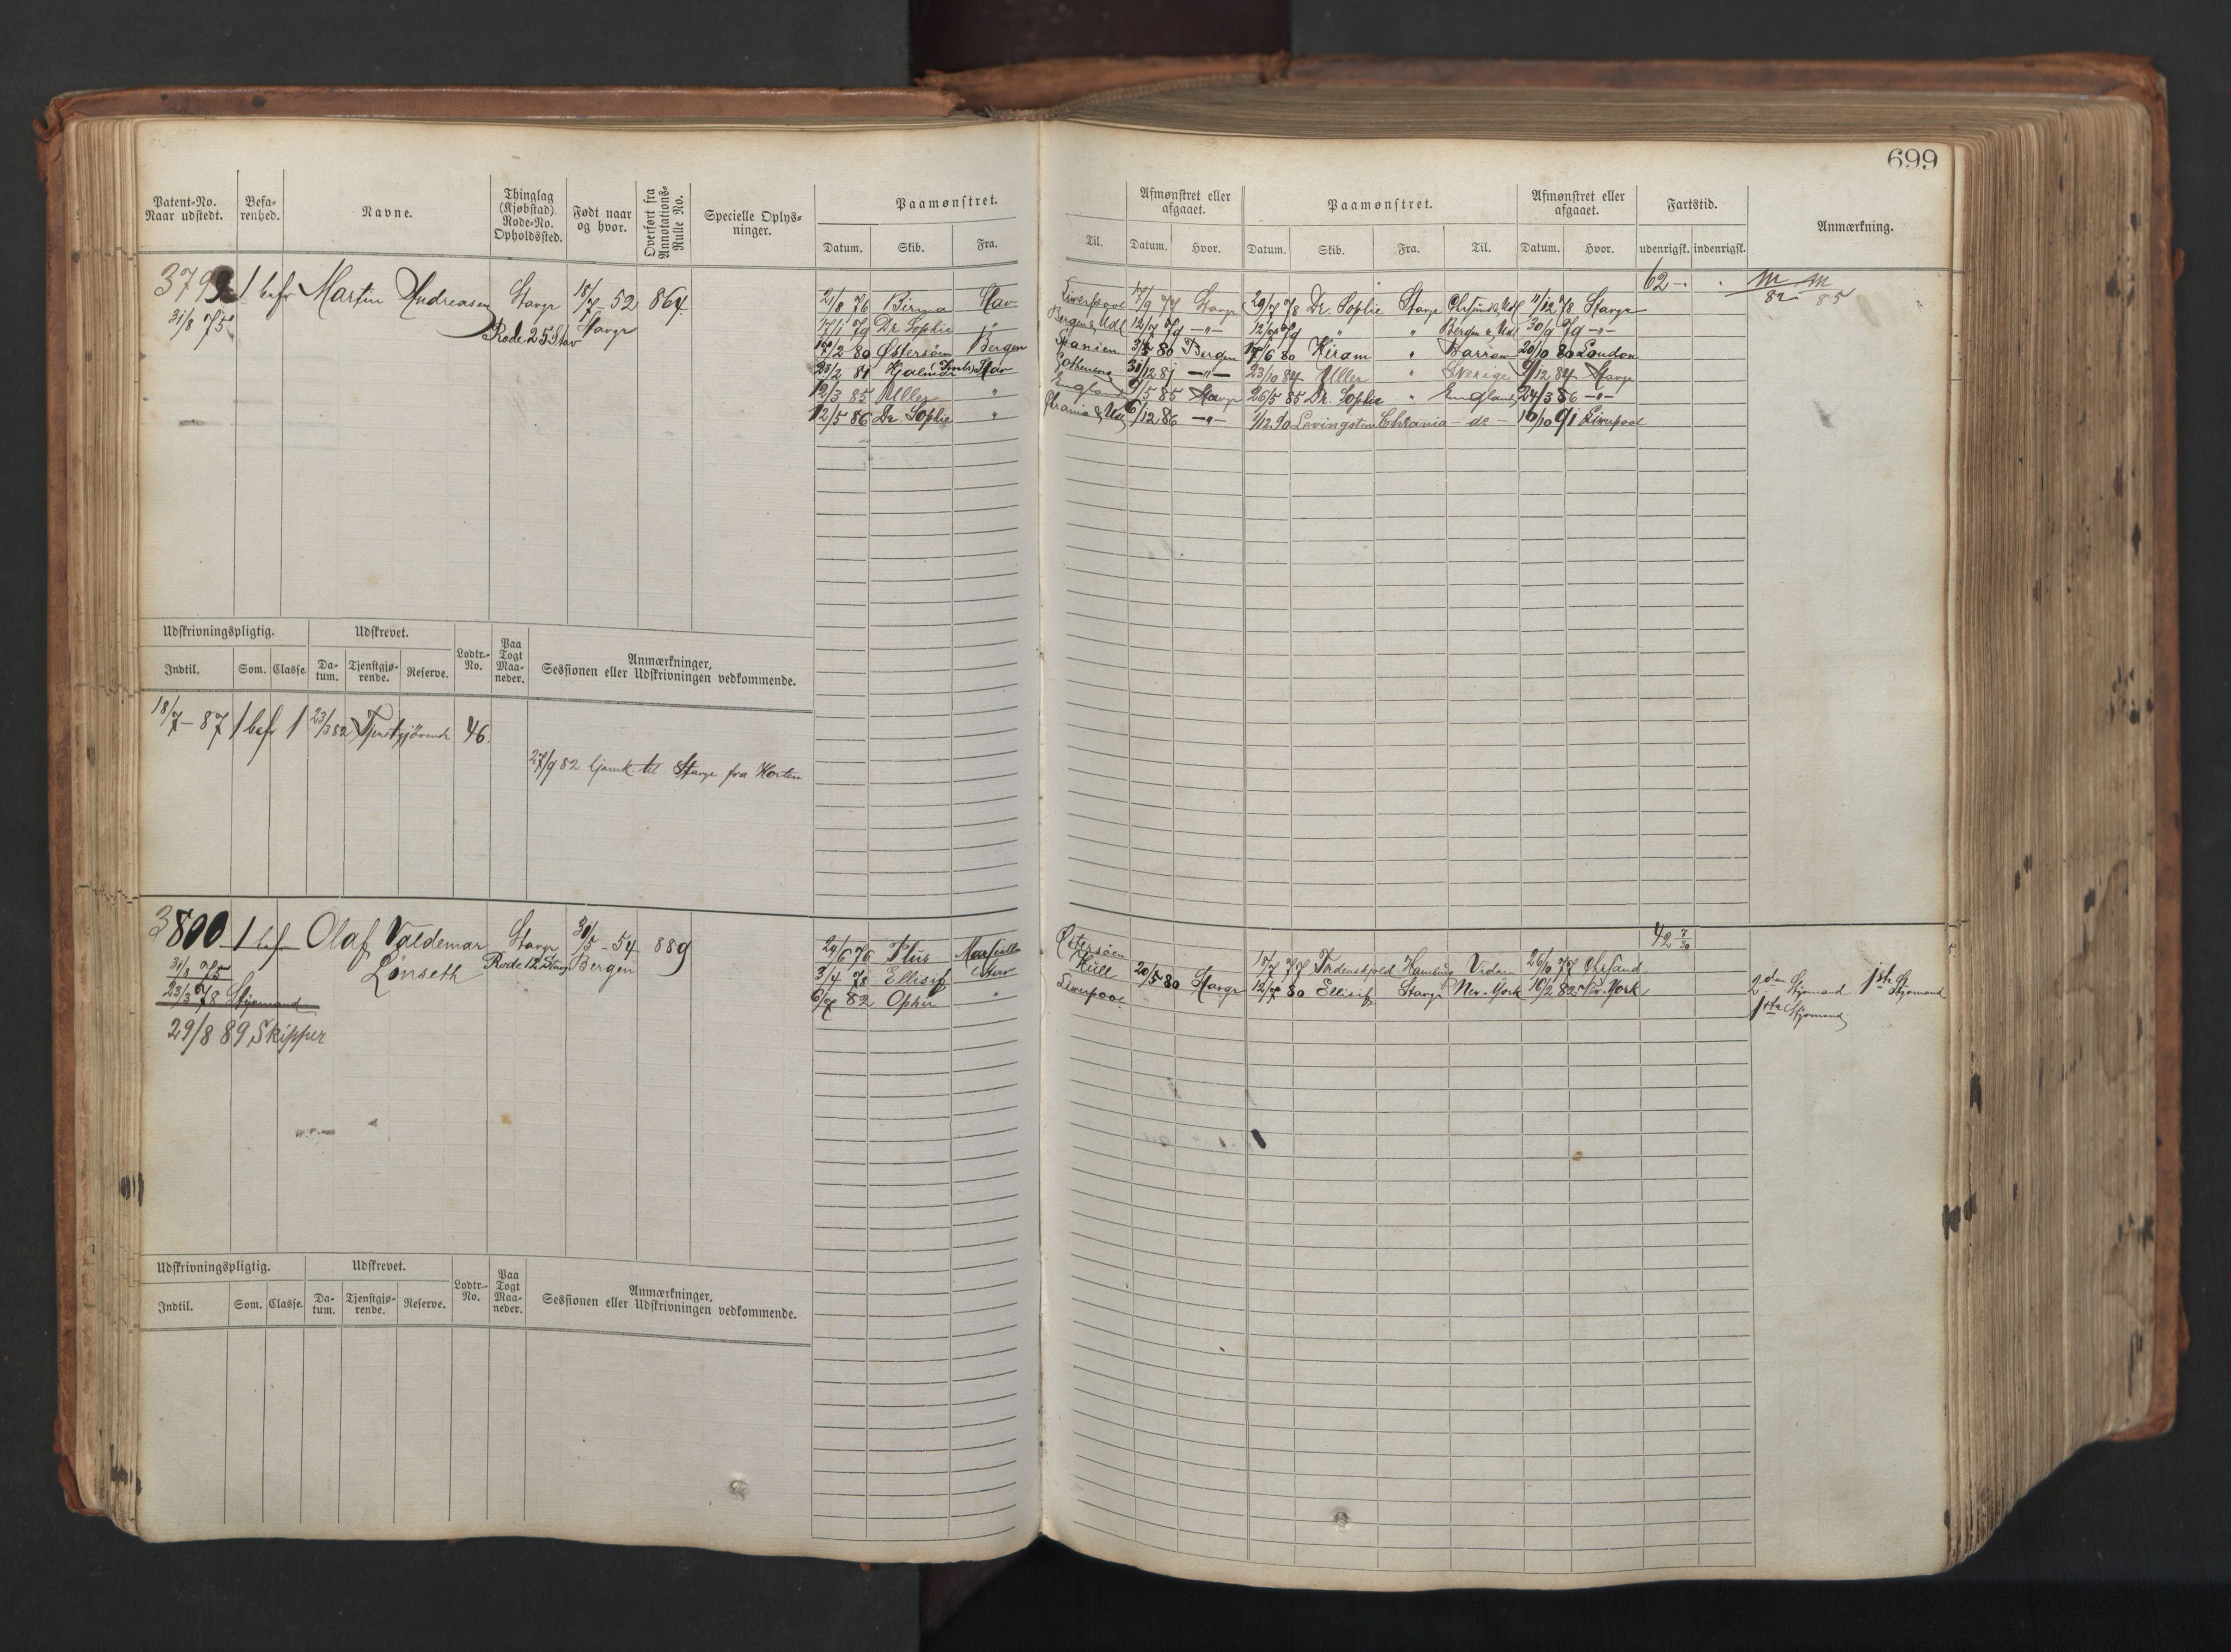 699
Patent-No. Naar udstedt. Befa-renhed. Navne. Thinglag (Kjøbstad) Rode-No. Opholdssted. Født naar og hvor. Overført fra Annotations-Rulle No. Specielle Oplys-ninger. Paamønstret. Afmønstret eller afgaaet. Paamønstret. Afmønstret eller afgaaet. Fartstid. Anmærkning.
Datum. Skib. Fra. Til. Datum. Hvor. Datum. Skib. Fra. Til. Datum. Hvor. udenrigsk. indenrigsk.
3799 1 bef Martin Andreasen Stavgr 18/7 - 52 864 62 -
31/8 75 Rode 25 Stav Stavgr
21/8 76 Birma Stav Liverpool 17/9 77 Stavgr 29/7 78 Dr. Sophie Stavgr Chrsund & Udl 11/12 78 Stavgr
17/1 79 Dr. Sophie " Bergen & Udl 12/7 79 -"- 12/7 79 " " Bergen & Udl 30/9 79 -"-
19/2 80 Østersøen Bergen Spanien 3/5 80 Bergen 17/6 80 Hiram " Barrow 20/10 80 London
23/2 81 Hjalmar Stav Gothenborg 31/12 81 -"- 23/10 84 Uller " Sverige 9/12 84 Stavgr
12/3 85 Uller " England 7/5 85 Stavgr 26/5 85 Dr. Sophie " England 24/3 86 -"-
12/5 86 Dr. Sophie " Chrania & Udl 6/12 86 -"- 1/12 90 Levingston Chrania - do - 16/10 91 Liverpool
Udskrivningspligtig. Udskrevet. Lodtr.-No. Paa Togt Maa-neder. Anmærkninger, Sessionen eller Udskrivningen vedkommende.
Indtil. Som. Classe. Da-tum. Tjenstgjø-rende. Reserve.
18/7 - 87 1 bef 1 23/3 82 Tjenstgjørende 46.
27/9 82 hjemk. til Stavgr fra Horten
3800 1 bef Olaf Valdemar Lönseth Stavgr 30/5 - 54 889 42 7/30
31/8 75 Rode 12 Stavgr Bergen
23/3 78 Styrmand
29/8 89 Skipper
29/6 76 Plus Marseille Østersøen 18/7 77 Tordenskjold Hamburg Vidare 26/10 77 Chrsand
3/4 78 Ellisif Stav Hull 20/5 80 Stavgr 12/7 80 Ellisif Stavgr New-York 10/2 82 New-York 2den Styrmand 1ste Styrmand
6/7 82 Ophir " Liverpool 1ste Styrmand
Udskrivningspligtig. Udskrevet. Lodtr.-No. Paa Togt Maa-neder. Anmærkninger, Sessionen eller Udskrivningen vedkommende.
Indtil. Som. Classe. Da-tum. Tjenstgjø-rende. Reserve.